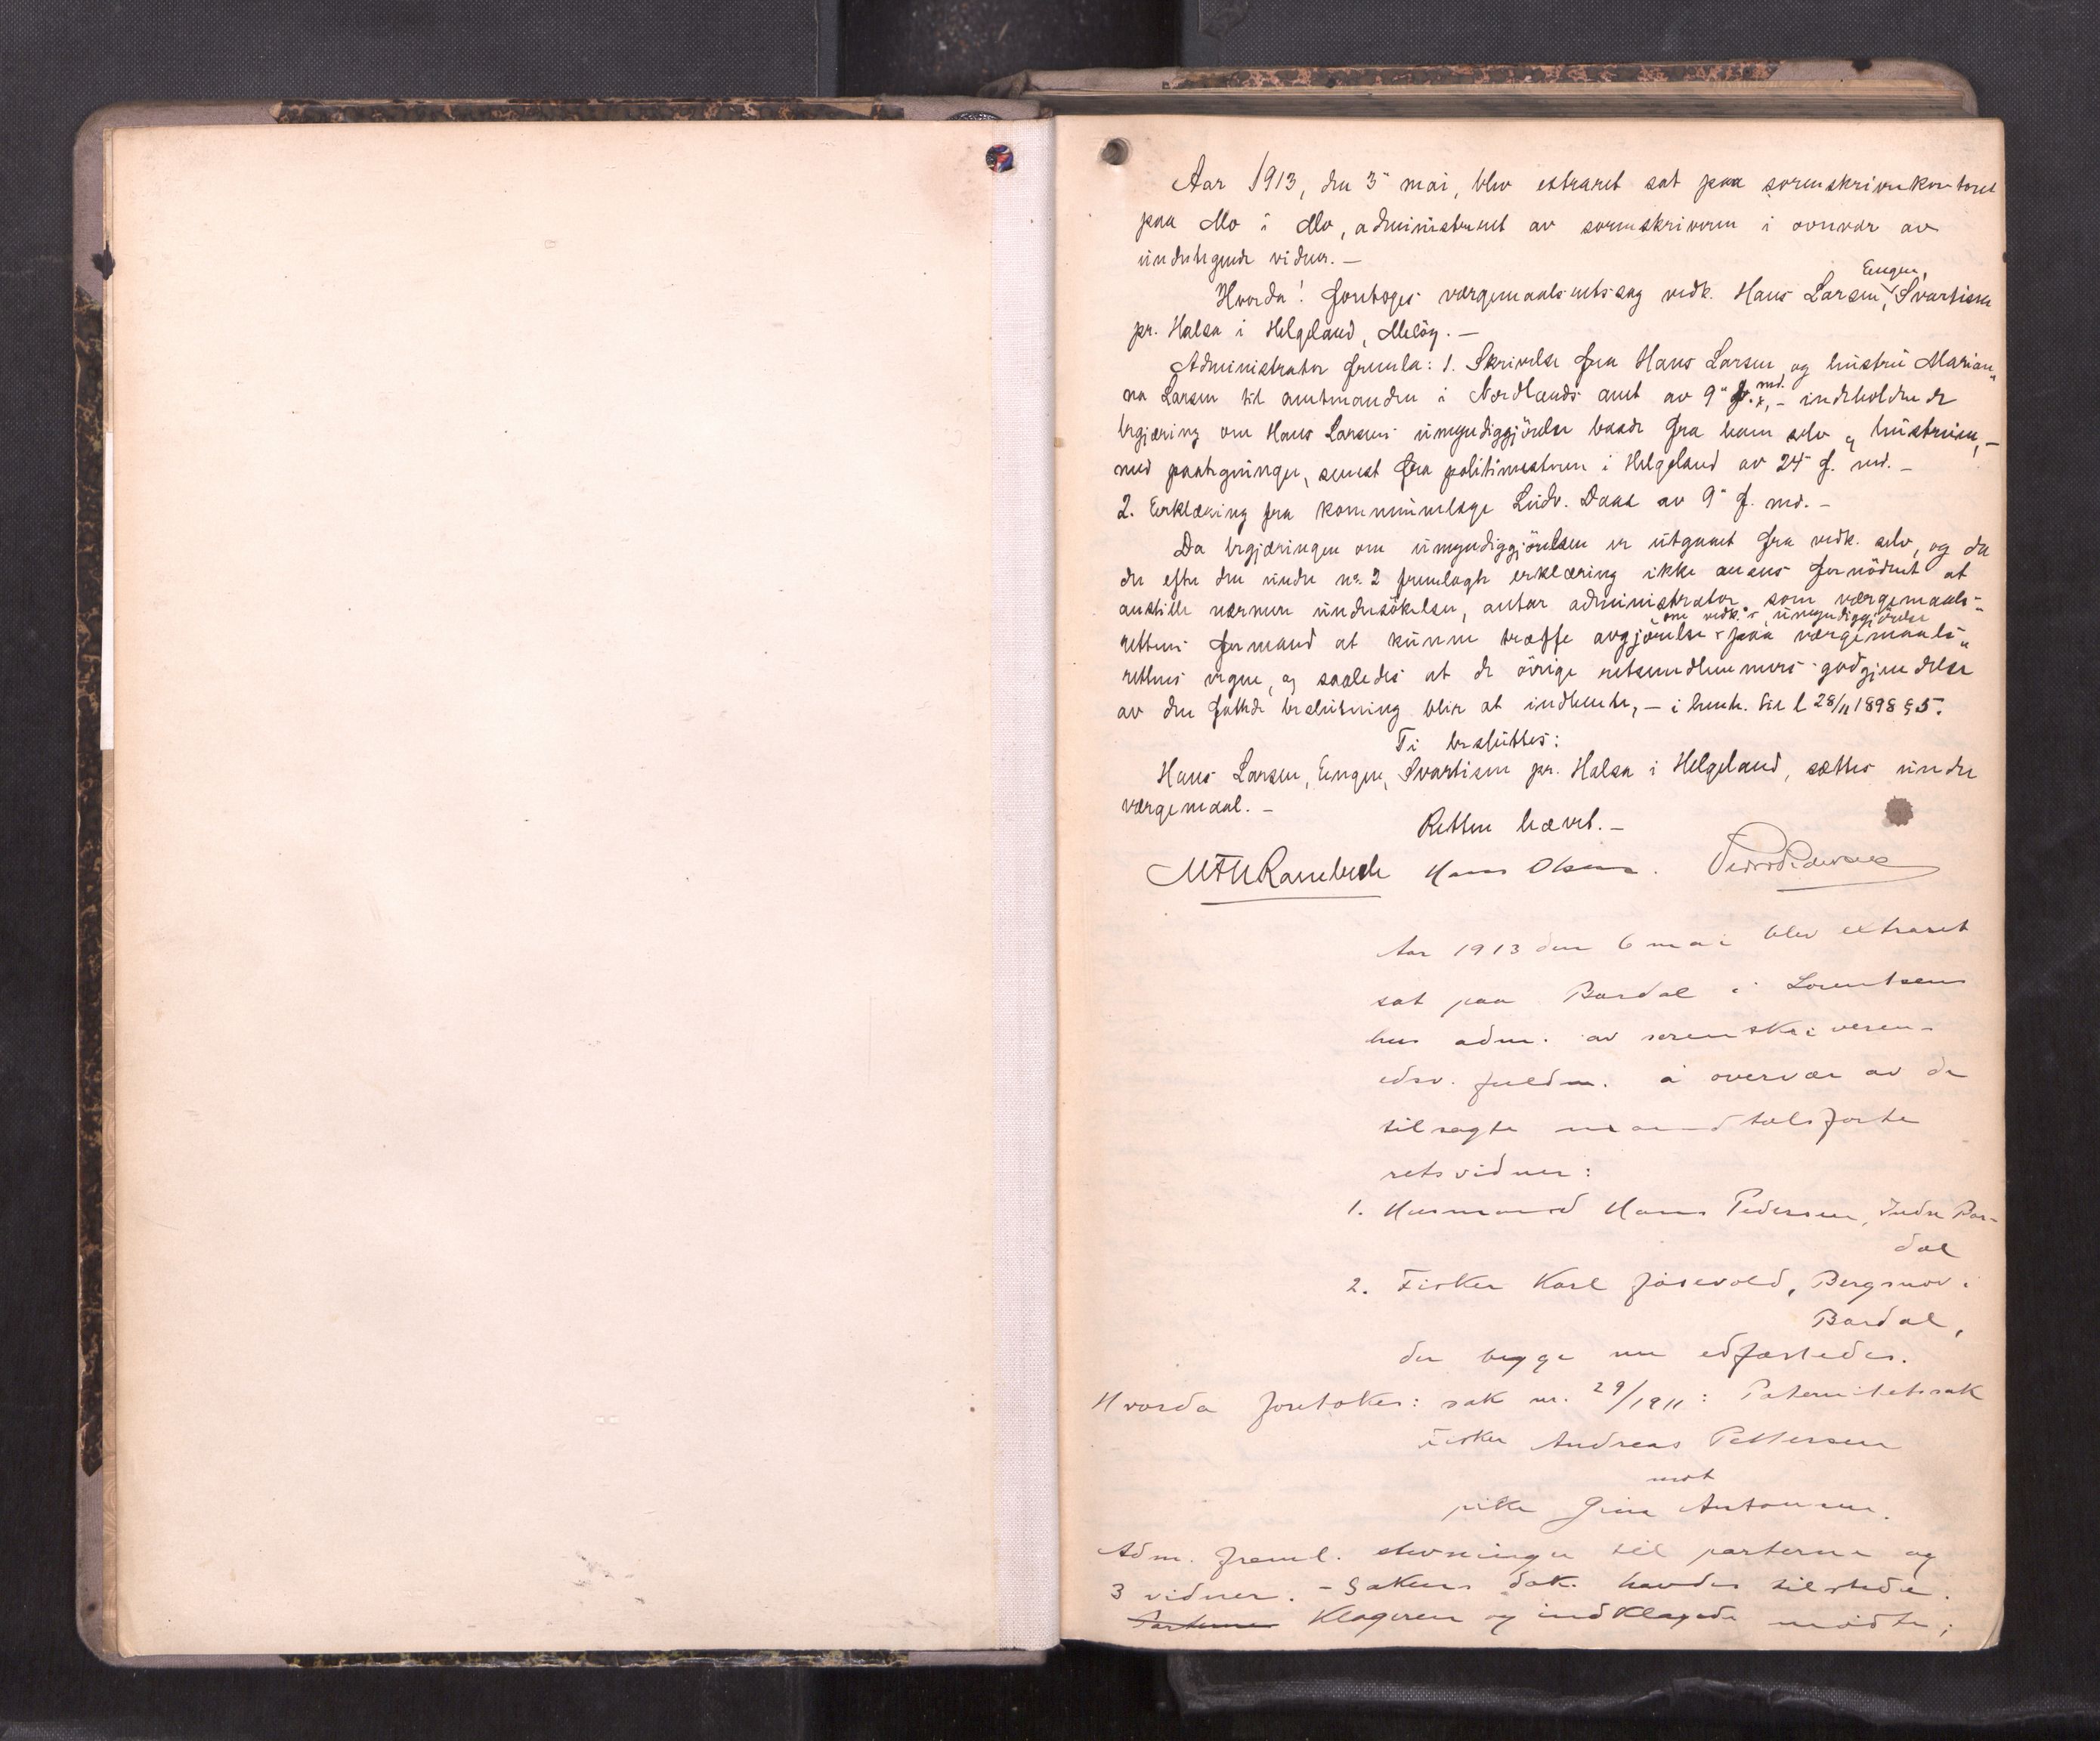 Aar 1913, den 3⁻ mai, blev extraret sat paa sorenskriverkontoret
paa Mo i Mo, administreret av sorenskriveren i overvær av
undertegnede vidner. –
Hvorda! foretoges værgemaalsretssag vedk. Hans Larsen, Engen, Svartisen
pr. Halsa i Helgeland, Meløy. –
Administrator fremla: 1. Skrivelse fra Hans Larsen og hustru Marian„
na Larsen til amtmanden i Nordlands amt av 9" f. md. – indeholdende
begjæring om Hans Larsens umyndiggjörelse baade fra ham selv og hustruen, –
med paategninger, senest fra politimesteren i Helgeland av 24⁻ f. md. –
2. Erklæring fra kommunelæge Ludv. Daae av 9" f. md. –
Da begjæringen om umyndiggjörelsen er utgaaet fra vedk. selv, og da
der efter den under nr. 2 fremlagte erklæring ikke ansees fornödent at
anstille nærmere undersökelser, antar administrator som værgemaals-
rettens formand at kunne træffe avgjörelse om vedk.s umyndiggjörelse paa værgemaals„
rettens vegne, og saaledes at de övrige retsmedlemmers godkjendelse
av den fattede beslutning blir at indhente, – i henh. til l 28/11 1898 § 5.
Ti besluttes:
Hans Larsen, Engen, Svartisen pr. Halsa i Helgeland, sættes under
værgemaal. –
Retten hævet. –
Hans Olsen.
Aar 1913 den 6 mai blev extraret
sat paa Bardal i Lorentsens
hus adm. av sorenskriveren-
edsv. fuldm. i overvær av de
tilsagte mandtalsførte
retsvidner:
1. Husmand Hans Pedersen, Indre Bar-
dal
2. Fisker Karl Jåsevold, Bergsmov i
Bardal,
der begge nu edfæstedes.
Hvorda foretokes: sak nr. 29/1911: Paternitetssak
Fisker Andreas Pettersen
mot
pike Gina Antonsen.
Adm. freml. stevninger til parterne og
3 vidner. – Sakens dok. havdes tilstede.
Parterne Klageren og indklagede mødte;